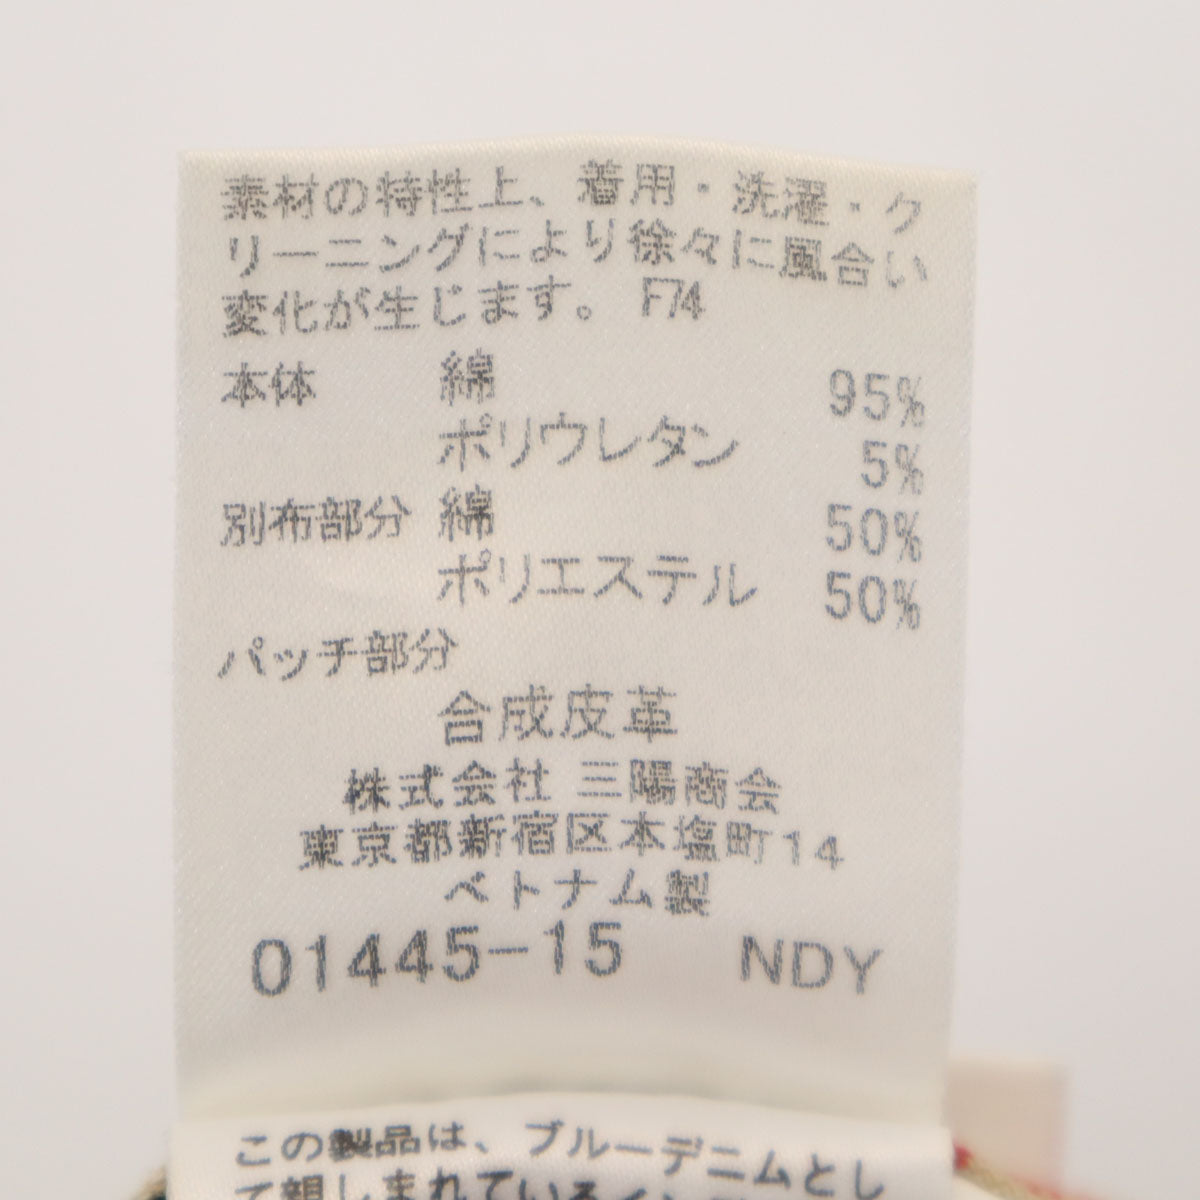 素材の特性上、着用・洗濯・ク
リーニングにより徐々に風合い
変化が生じます。 F74
本体 綿 95%
ポリウレタン 5%
別布部分 綿 50%
ポリエステル 50%
パッチ部分
合成皮革
株式会社 三陽商会
東京都新宿区本塩町14
ベトナム製
01445-15 NDY
この製品は、ブルーデニムとし
て親しまれている